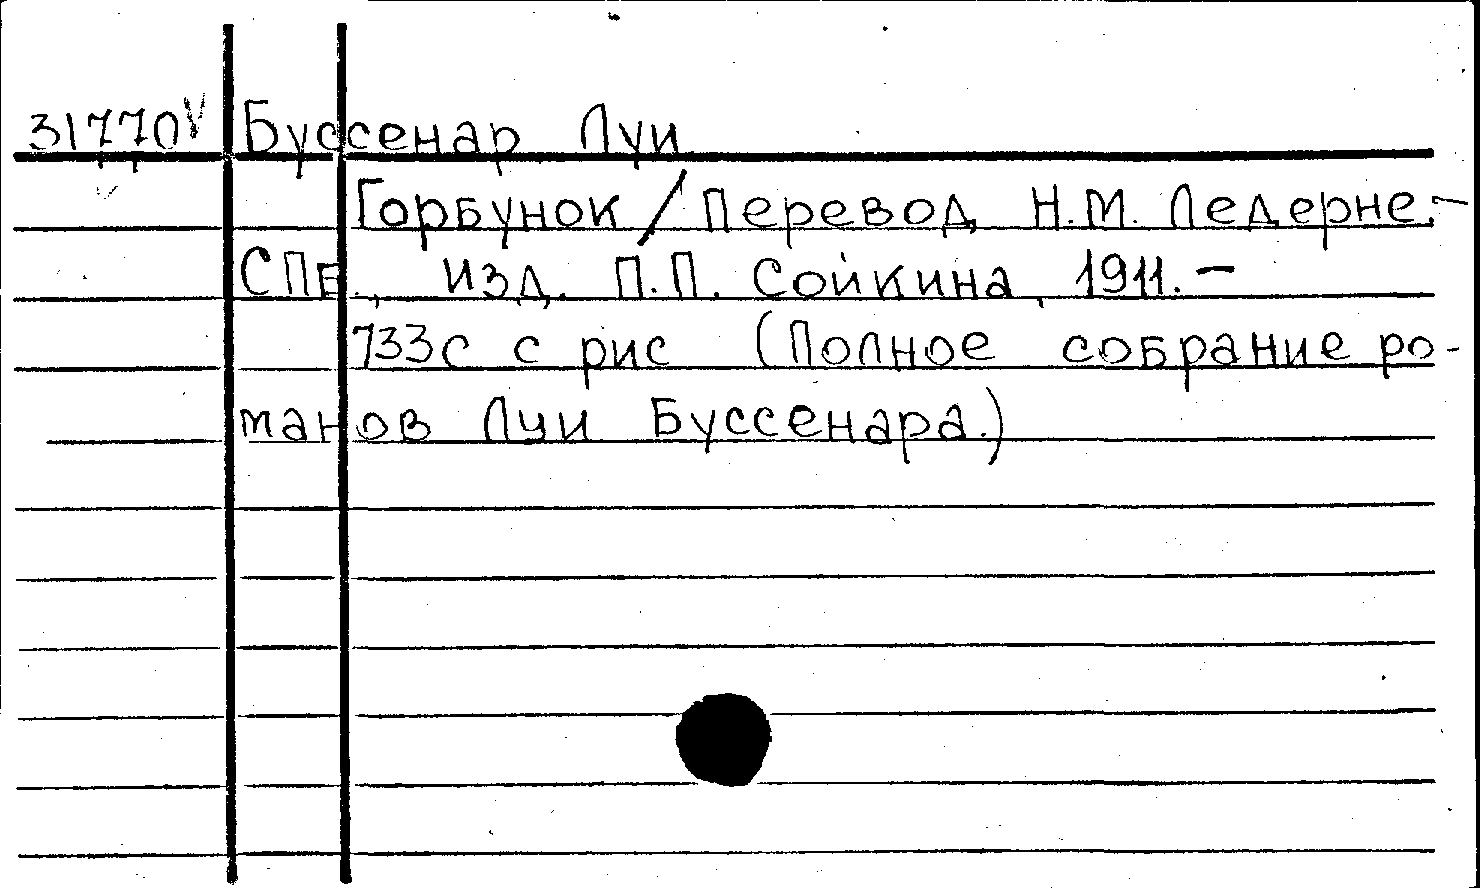 31770 V Буссенар Луи
Горбунок / Перевод Н.М. Ледерне.-
СПБ., изд. П.П. Сойкина, 1911.-
733с с рис (Полное собрание ро-
манов Луи Буссенара.)